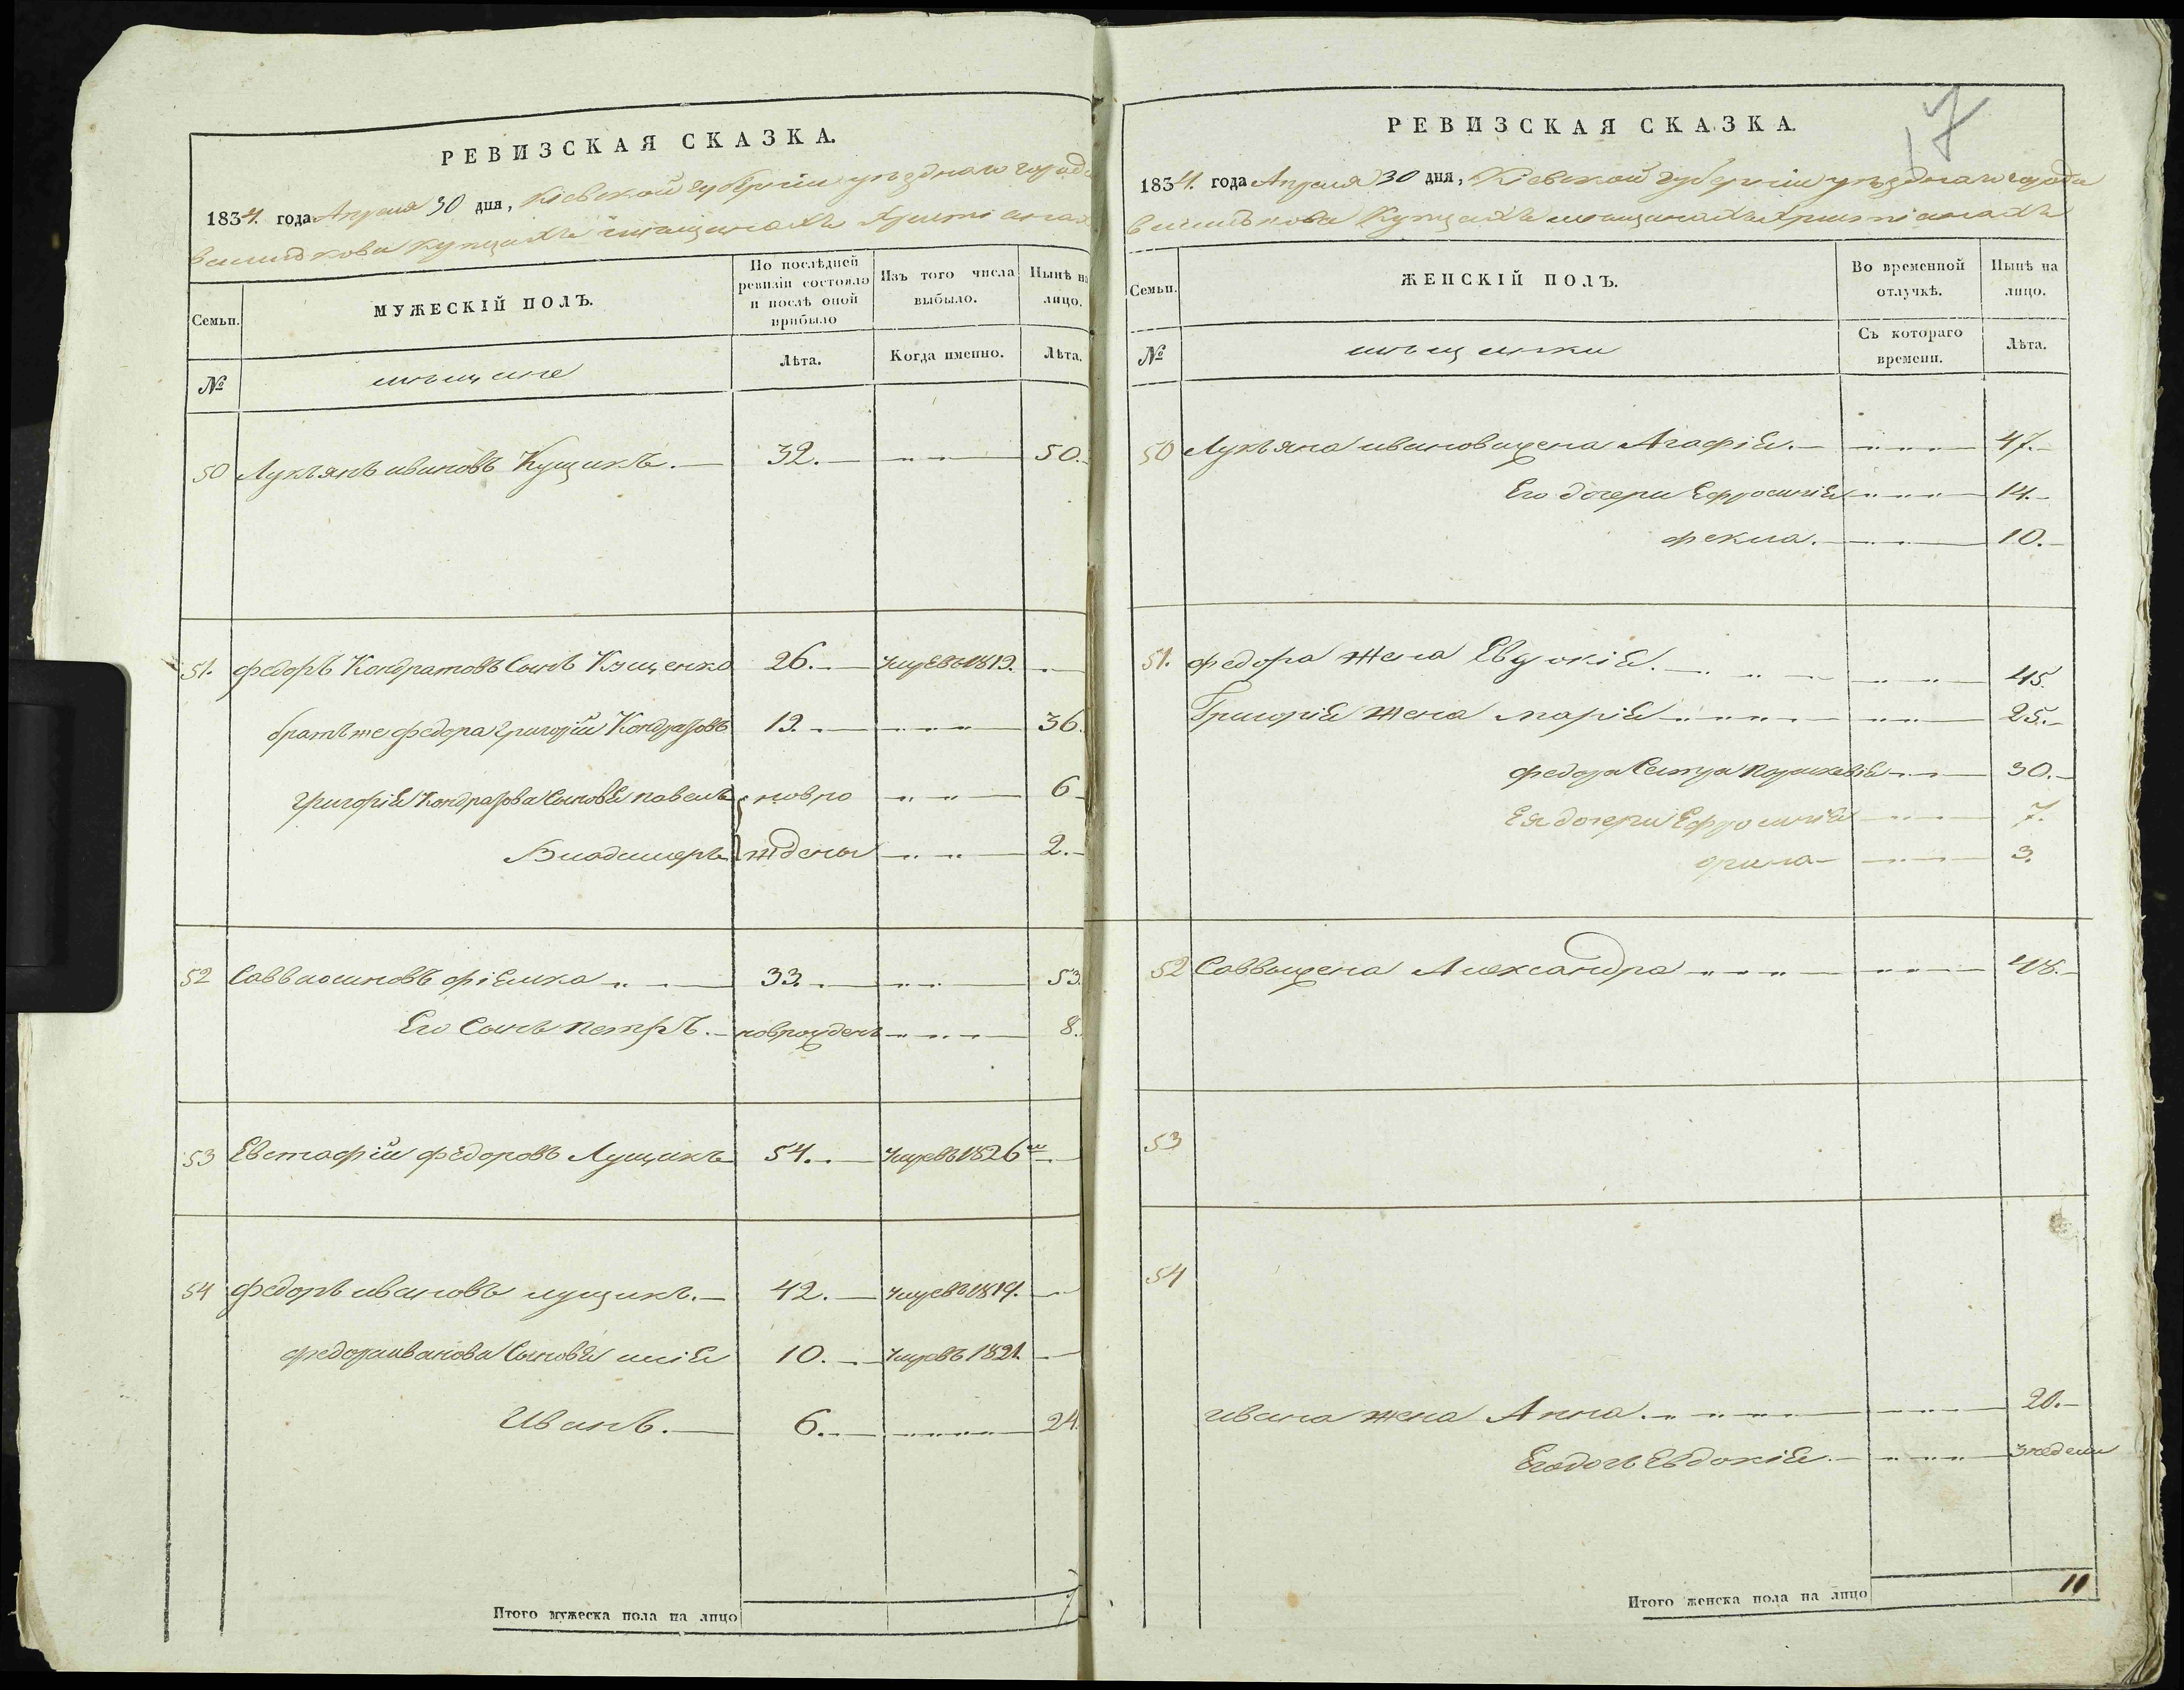 РЕВИЗСКАЯ СКАЗКА.
1834. года Апреля 30 дня, Кіевской губерніи уезднаго города
василькова купцахъ и мещанахъ христіанах
Семьи.
МУЖЕСКІЙ ПОЛЪ.
По послѣдней ревизіи состояло и послѣ оной прибыло
Изъ того числа выбыло.
Нынѣ на лицо.
№
мещане
Лѣта.
Когда именно.
Лѣта.
50 Лукъянъ ивановъ Кущикъ. 32. 50.
51. федоръ Кондратовъ Сынъ Кущенко 26. умре въ 1819.
братъ же федора григорій Кондратовъ 19. 36.
григорія Кондратова Сыновья павелъ новро 6
Владимеръ ждены 2.
52 Савва осиповъ фіялка 33. 53.
Его Сынъ петръ. новрожденъ 8.
53 Евстафій федоровъ Лущикъ 54. умре въ 1826
54 федоръ ивановъ лущикъ. 42. умре въ 1819.
федора иванова Сыновья илія 10. умре въ 1821.
Иванъ. 6. 24.
Итого мужеска пола на лицо 7
17
РЕВИЗСКАЯ СКАЗКА.
1834. года Апреля 30 дня, Кіевской губерніи уезднаго города
василькова Купцахъ мещанахъ христіанахъ
Семьи.
ЖЕНСКІЙ ПОЛЪ.
Во временной отлучкѣ.
Нынѣ на лицо.
№
мещанки
Съ котораго времени.
Лѣта.
50 Лукъяна иванова жена Агафія. 47.
Его дочери Ефросинія 14.
фекла. 10.
51. федора жена Евдокія. 45.
Григорія жена марія 25.
федора Сестра параскевія 30.
Ея дочери Ефросинія 7.
орина 3.
52 Саввы жена Александра 48.
53
54
ивана жена Анна. 20.
Его дочь Евдокія. 3 недели
Итого женска пола на лицо 11